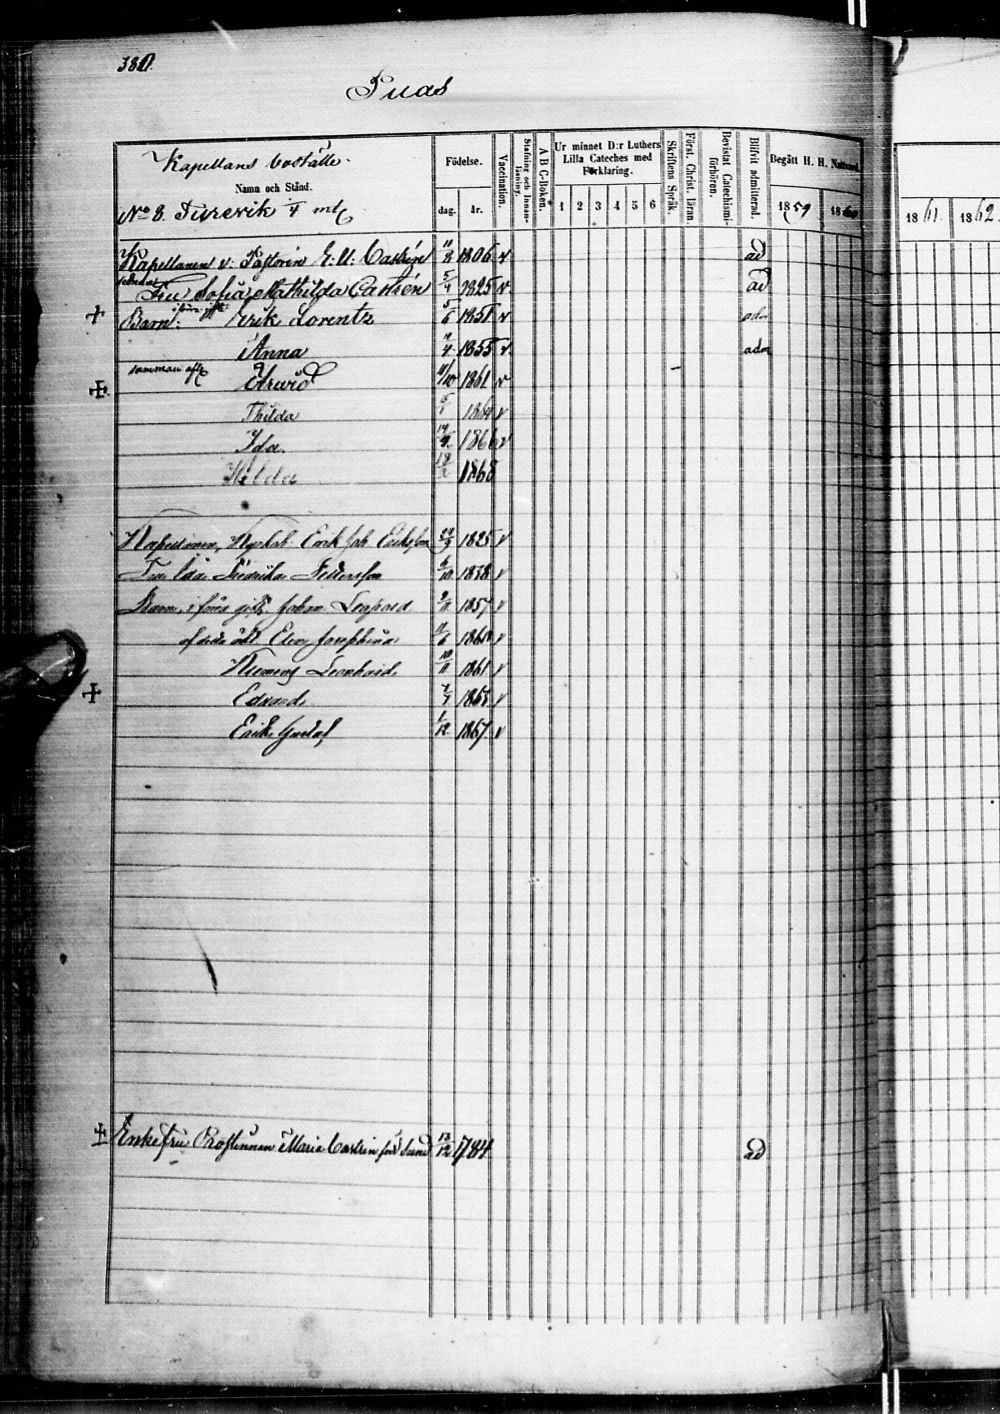 380.
Puas
Kapellans boställe.
Namn och Stånd.
No 8. Turevik 1/4 mtl
Födelse.
dag.
år.
Vaccination.
Stafning och Innanläsning.
A B C-Boken.
Ur minnet D:r Luthers Lilla Cateches med Förklaring.
1 2 3 4 5 6
Skriftens Språk.
Först. Christ. läran.
Bevistat Catechismiförhören.
Blifvit admitterad.
Begått H. H. Nattvard
1859 1860
1861. 1862.
Kapellanen v. Pastorn E. U. Castrén 11/8 1806 v ad
Fru Sofia Mathilda Castrén 5/4 1825 v ad
Barn: i förra gifte Erik Lorentz 5/6 1851 v adm
Anna 11/4 1855 v adm
Arwid 11/10 1861 v
Thilda 5/1 1864 v
Ida. 1866 v
Hilda 1868
Kapellanen, Erik Joh Eriksson 1825 v
Fru Fredrika Pettersson 6/10 1838 v
Barn, i förra gifte Johan Leopold 9/11 1857 v
af detta Josephina 11/6 1860 v
Klemens Leonhard 10/11 1861 v
Edvard 1863 v
Erik Gustaf 1/12 1867 v
Enkefru Prostinnan Maria Castrén född 13/12 1784 ad